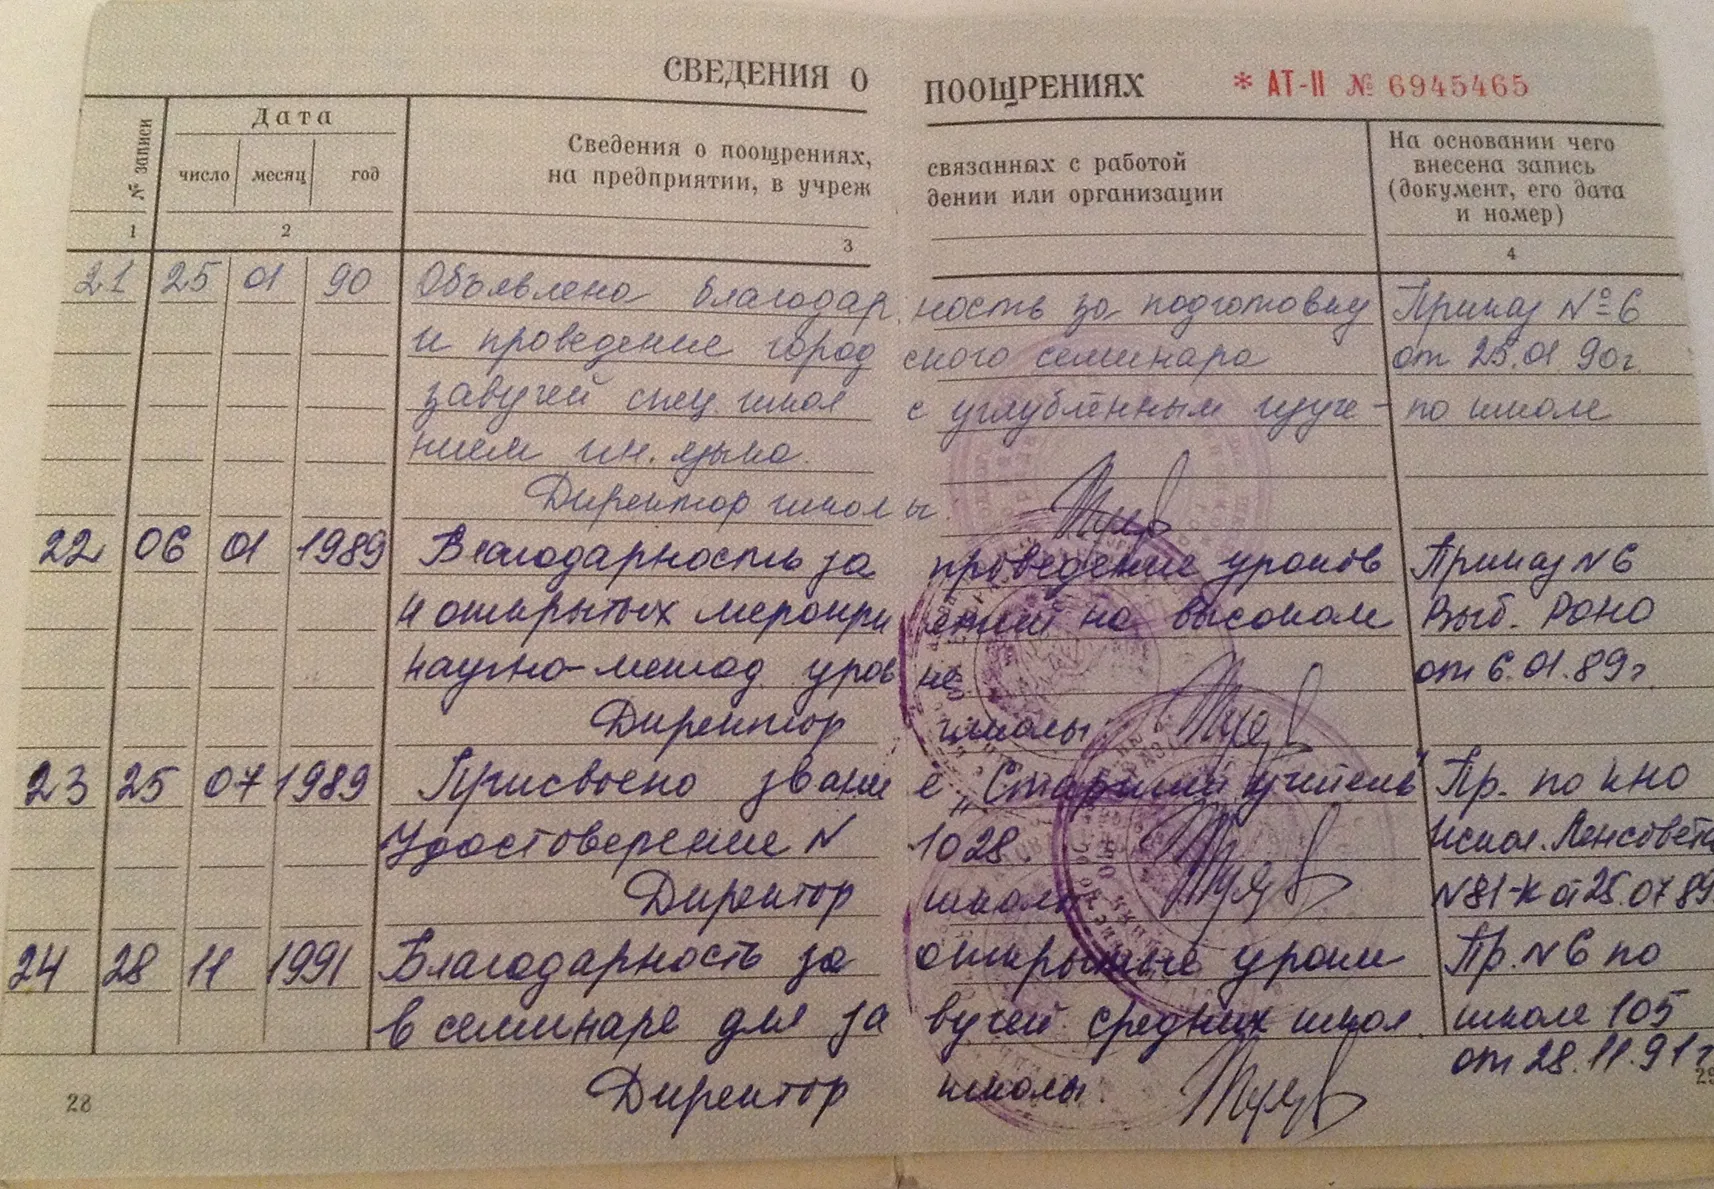 СВЕДЕНИЯ О ПООЩРЕНИЯХ * АТ-II № 6945465
№ записи
Дата
число месяц год
Сведения о поощрениях, связанных с работой
на предприятии, в учреждении или организации
На основании чего
внесена запись
(документ, его дата
и номер)
1 2 3 4
21 25 01 90 Объявлена благодарность за подготовку Приказ № 6
и проведение городского семинара от 25.01 90г.
завучей спец. школ с углублённым изуче- по школе
нием ин. языка.
Директор школы
22 06 01 1989 Благодарность за проведение уроков Приказ N 6
и открытых мероприятий на высоком Выб. Роно
научно-метод. уровне от 6.01.89г.
Директор школы
23 25 07 1989 Присвоено звание „Старший учитель" Пр. по КНО
Удостоверение N 1028. Испол. Ленсовета
Директор школы N 81-К от 25.07 89
24 28 11 1991 Благодарность за открытые уроки Пр. N 6 по
в семинаре для завучей средних школ. школе 105
от 28.11.91 г
Директор школы
28